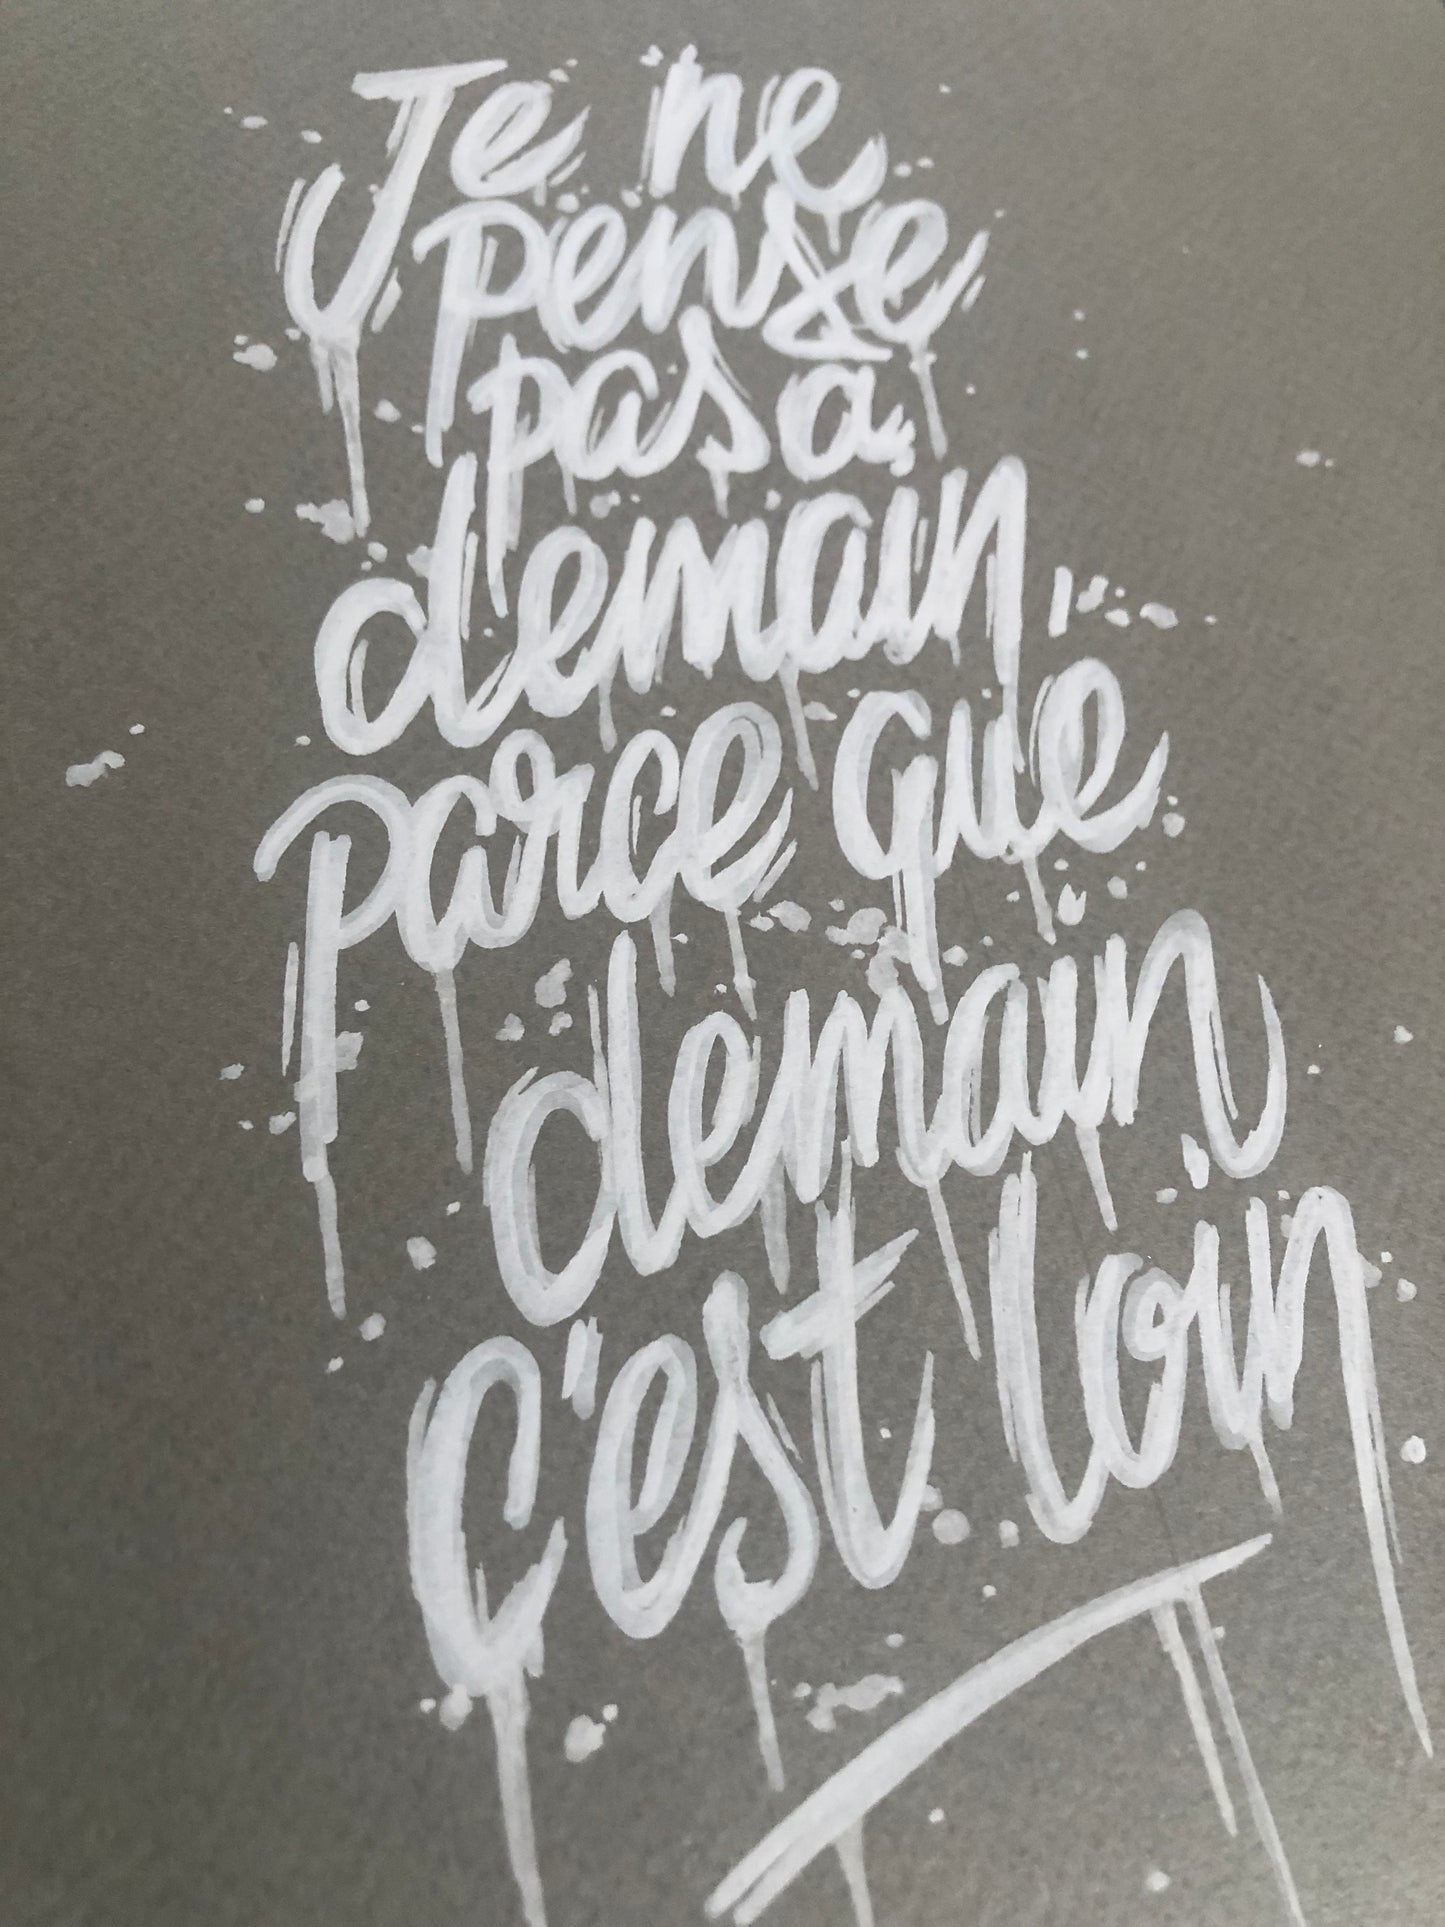 Je ne
pense
pas à
demain
parce que
demain
c'est loin